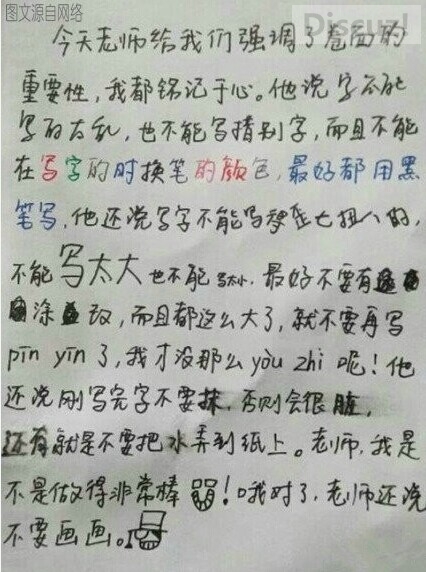 图文源自网络
Discuz!
今天老师给我们强调了卷面的
重要性,我都铭记于心。他说字不能
写的太乱,也不能写措别字,而且不能
在写字的时换笔的颜色,最好都用黑
笔写,他还说写字不能写歪七扭八的,
不能写太大也不能写太小,最好不要有
涂改,而且都这么大了,就不要再写
pīn yīn了,我才没那么yòu zhi呢!他
还说刚写完字不要抹,否则会很脏,
还有就是不要把水弄到纸上。老师,我是
不是做得非常棒!哦对了,老师还说
不要画画。